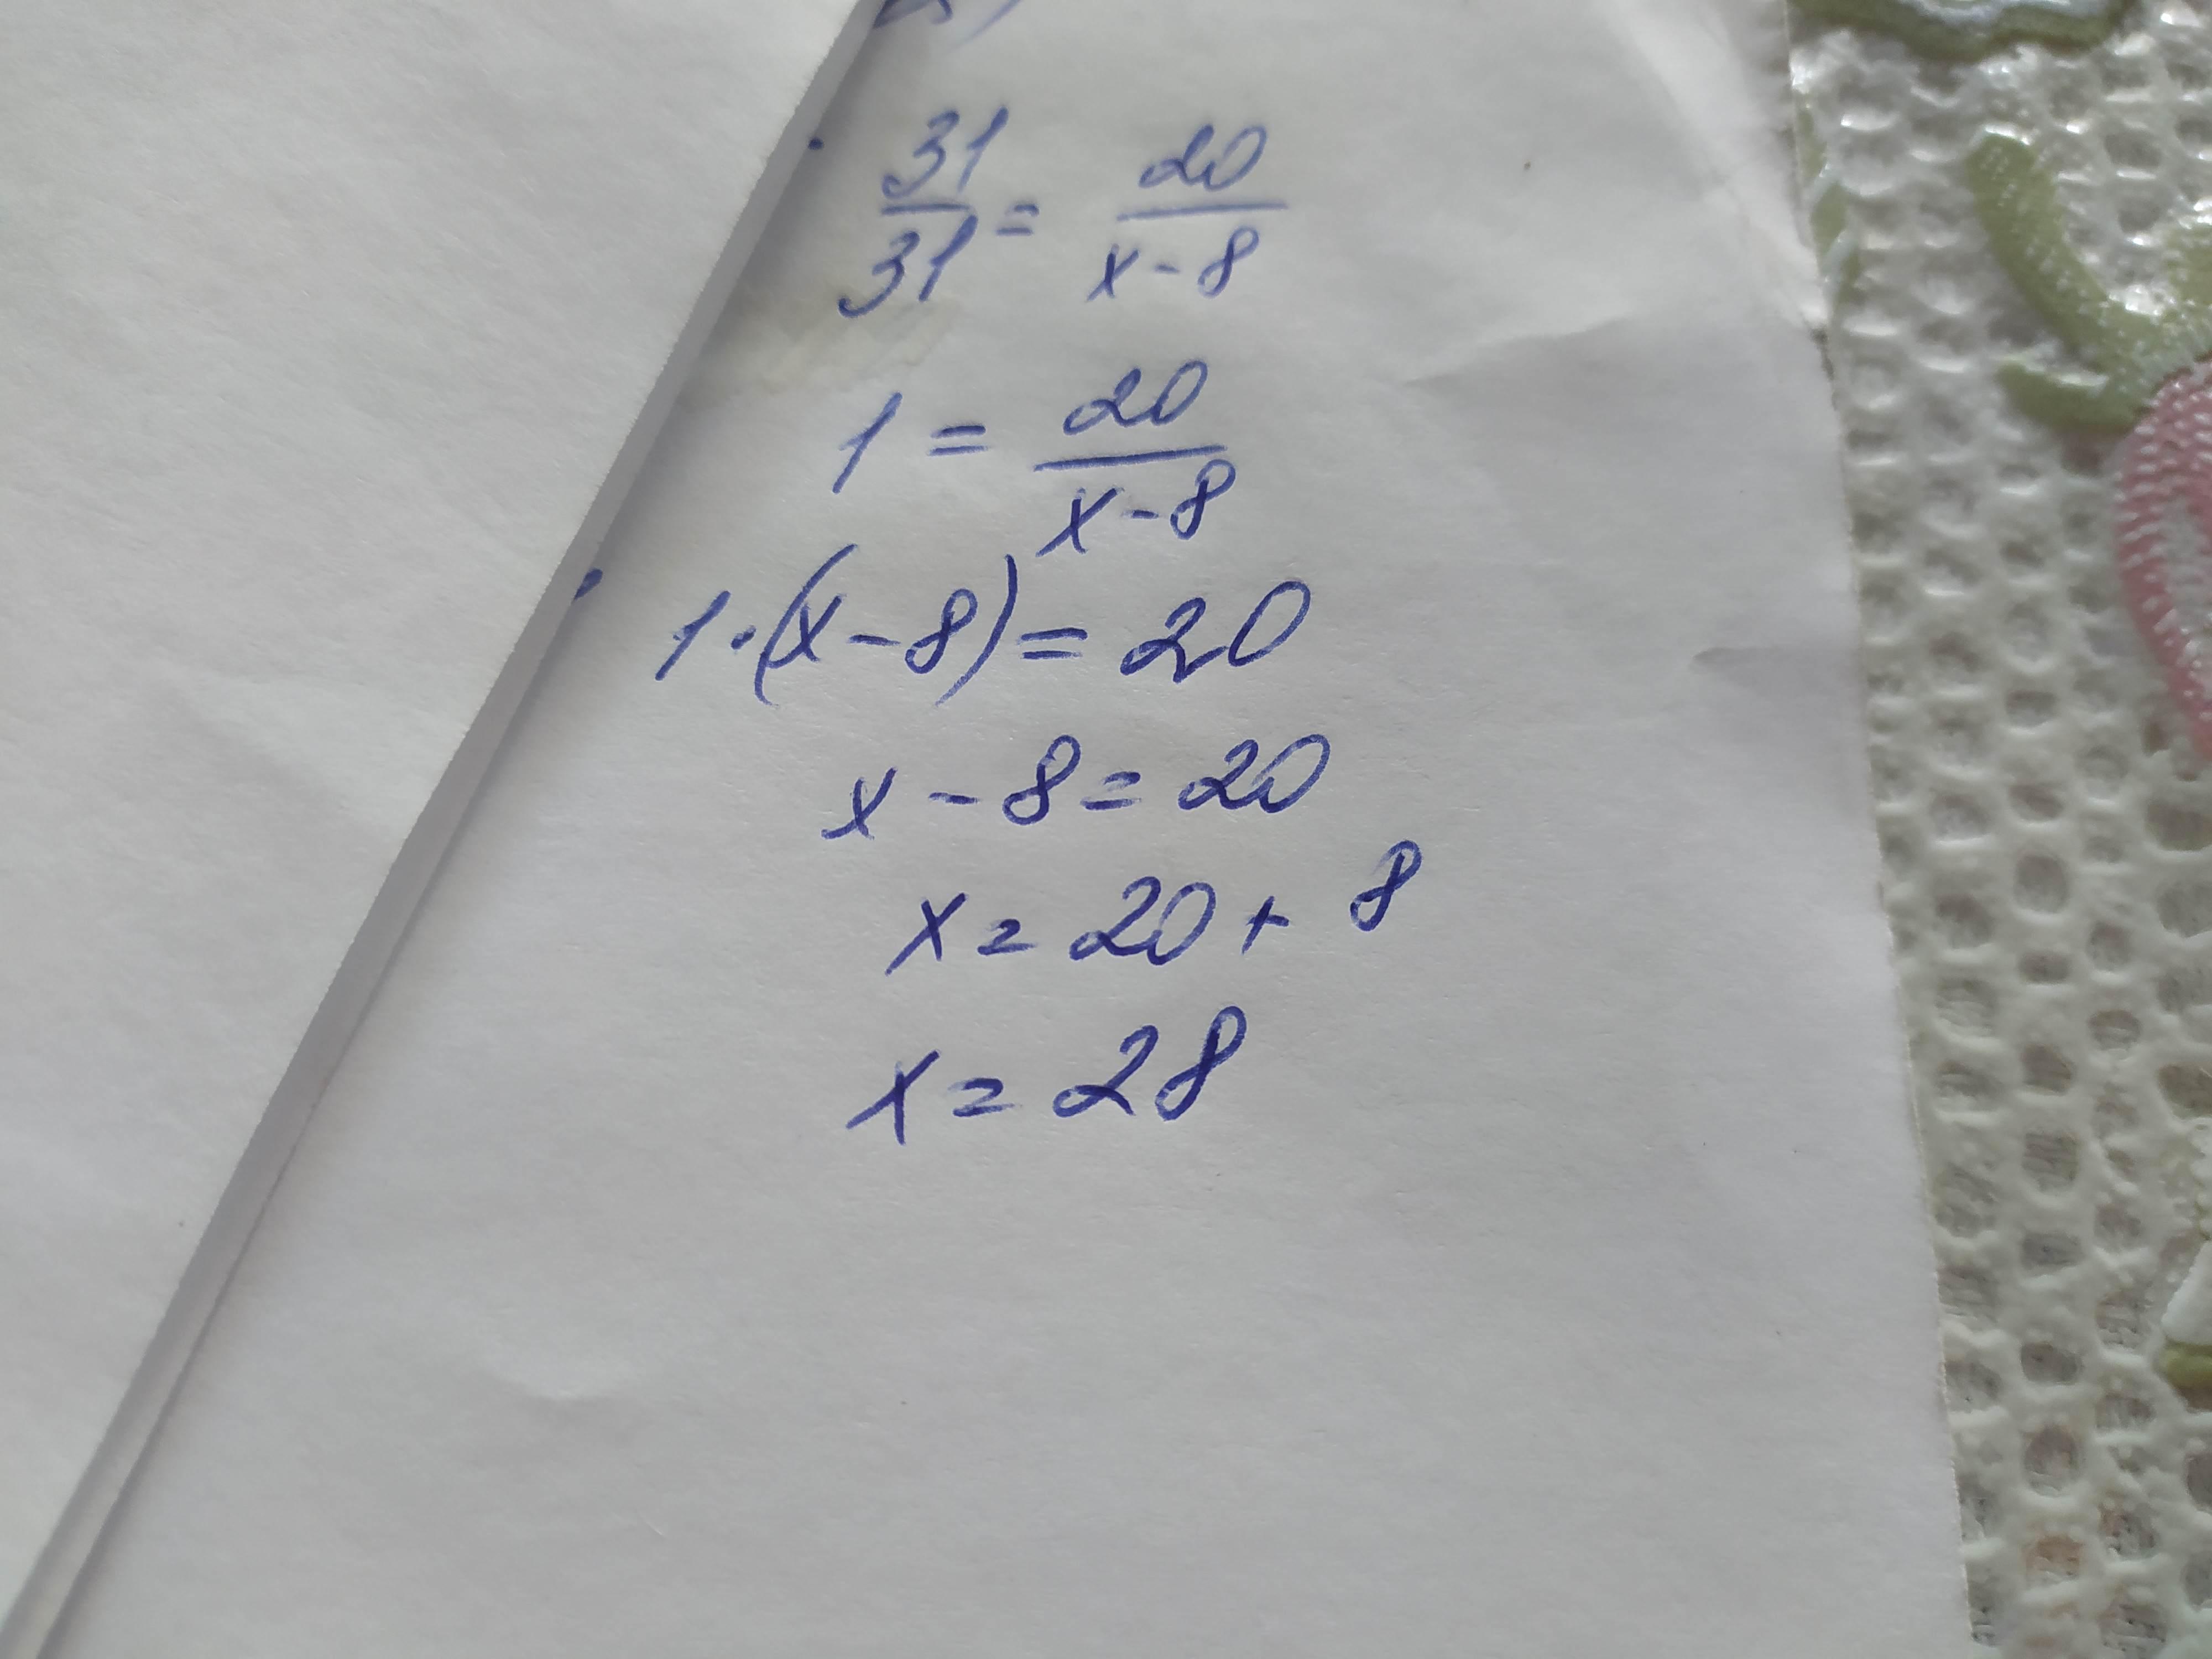 31/31 = 20/x-8
1 = 20/x-8
1·(x-8) = 20
x-8 = 20
x = 20 + 8
x = 28